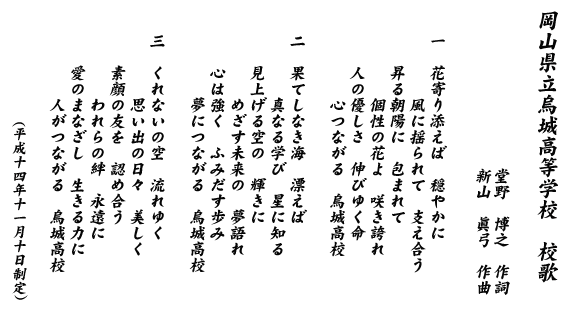 岡山県立烏城高等学校　校歌
堂野　博之　作詞
新山　眞弓　作曲
一　花寄り添えば　穏やかに
風に揺られて　支え合う
昇る朝陽に　包まれて
個性の花よ　咲き誇れ
人の優しさ　伸びゆく命
心つながる　烏城高校
二　果てしなき海　漂えば
真なる学び　星に知る
見上げる空の　輝きに
めざす未来の　夢語れ
心は強く　ふみだす歩み
夢につながる　烏城高校
三　くれないの空　流れゆく
思い出の日々　美しく
素顔の友を　認め合う
われらの絆　永遠に
愛のまなざし　生きる力に
人がつながる　烏城高校
（平成十四年十一月十日制定）